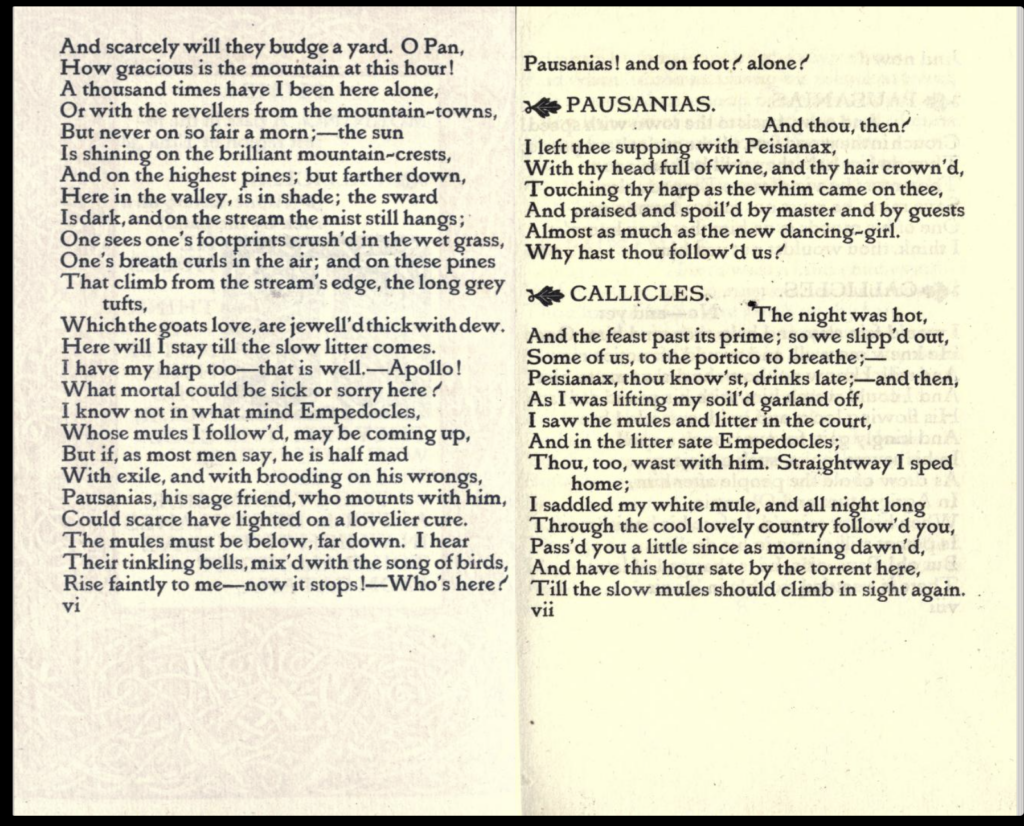 And scarcely will they budge a yard. O Pan,
How gracious is the mountain at this hour!
A thousand times have I been here alone,
Or with the revellers from the mountain-towns,
But never on so fair a morn;—the sun
Is shining on the brilliant mountain-crests,
And on the highest pines; but farther down,
Here in the valley, is in shade; the sward
Is dark, and on the stream the mist still hangs;
One sees one's footprints crush'd in the wet grass,
One's breath curls in the air; and on these pines
That climb from the stream's edge, the long grey
tufts,
Which the goats love, are jewell'd thick with dew.
Here will I stay till the slow litter comes.
I have my harp too—that is well.—Apollo!
What mortal could be sick or sorry here?
I know not in what mind Empedocles,
Whose mules I follow'd, may be coming up,
But if, as most men say, he is half mad
With exile, and with brooding on his wrongs,
Pausanias, his sage friend, who mounts with him,
Could scarce have lighted on a lovelier cure.
The mules must be below, far down. I hear
Their tinkling bells, mix'd with the song of birds,
Rise faintly to me—now it stops!—Who's here?
vi
Pausanias! and on foot? alone?
PAUSANIAS.
And thou, then?
I left thee supping with Peisianax,
With thy head full of wine, and thy hair crown'd,
Touching thy harp as the whim came on thee,
And praised and spoil'd by master and by guests
Almost as much as the new dancing-girl.
Why hast thou follow'd us?
CALLICLES.
The night was hot,
And the feast past its prime; so we slipp'd out,
Some of us, to the portico to breathe;—
Peisianax, thou know'st, drinks late;—and then,
As I was lifting my soil'd garland off,
I saw the mules and litter in the court,
And in the litter sate Empedocles;
Thou, too, wast with him. Straightway I sped
home;
I saddled my white mule, and all night long
Through the cool lovely country follow'd you,
Pass'd you a little since as morning dawn'd,
And have this hour sate by the torrent here,
Till the slow mules should climb in sight again.
vii